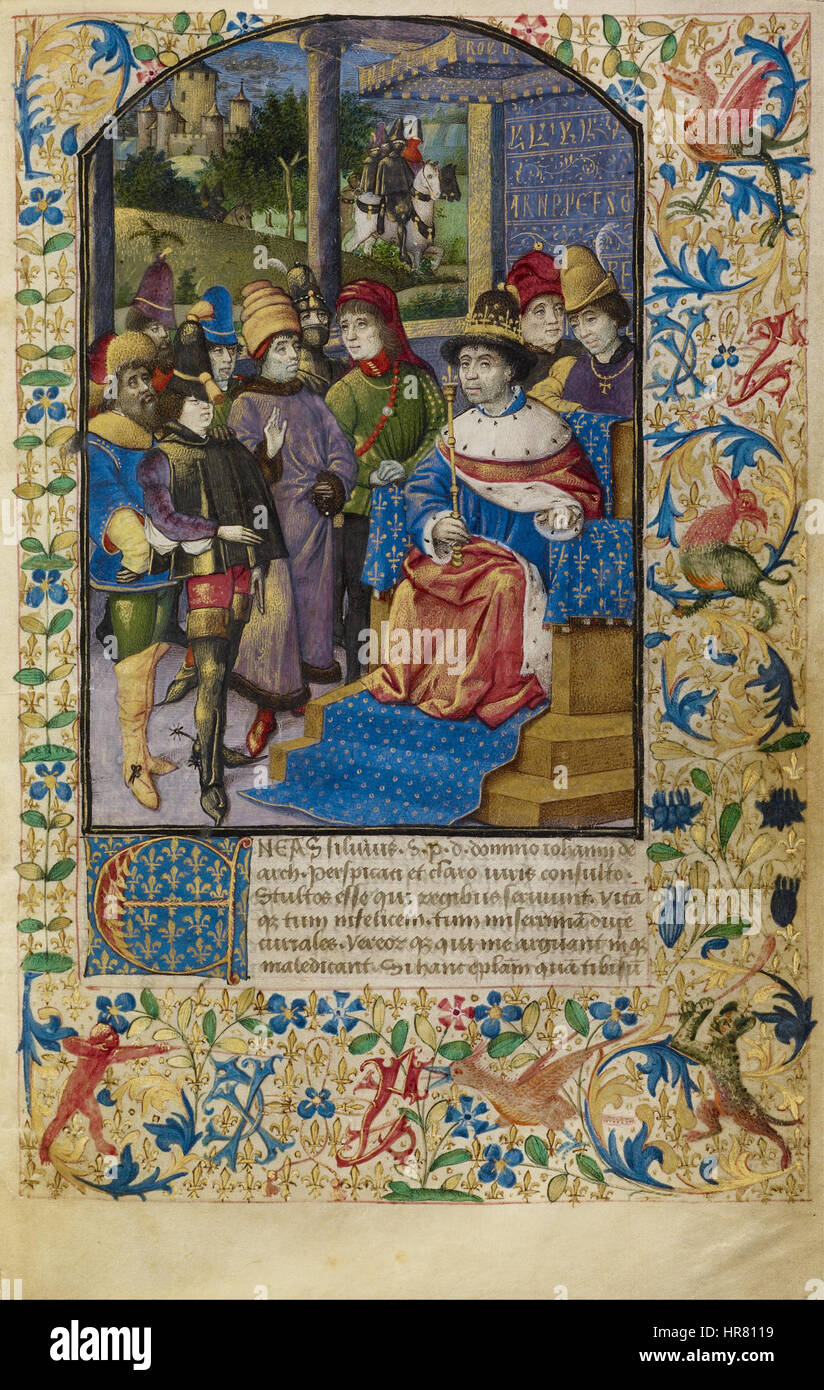 ROY D
ARNPICFSO
PE
ENEAS siluius. S. p. d. domino iohanni de
arch. Perspicaci et claro iuris consulto.
Stultos esse qui regibus seruiunt. Vita
qz tum infelicem. tum miserrimā duce
curiales. Vereor qz qui me arguant in qz
maledicant. Si hanc eplam quā tibi sū
a
alamy stock photo
HR8119
www.alamy.com